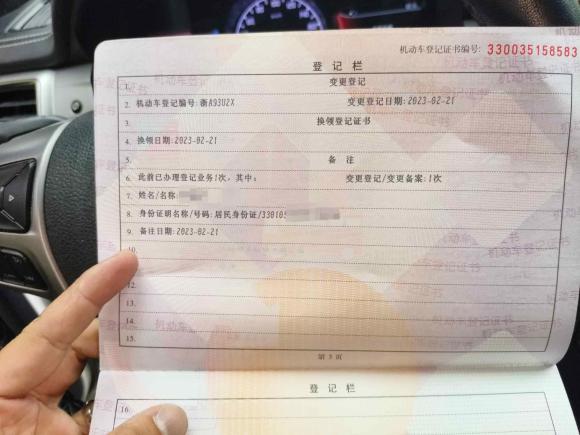 机动车登记证书编号: 330035158583
登记栏
1. 变更登记
2. 机动车登记编号:浙A93U2X 变更登记日期:2023-02-21
3. 换领登记证书
4. 换领日期:2023-02-21
5. 备注
6. 此前已办理登记业务1次,其中: 变更登记/变更备案:1次
7. 姓名/名称
8. 身份证明名称/号码:居民身份证/330105
9. 备注日期:2023-02-21
10.
12.
13.
14.
15.
第3页
登记栏
16.